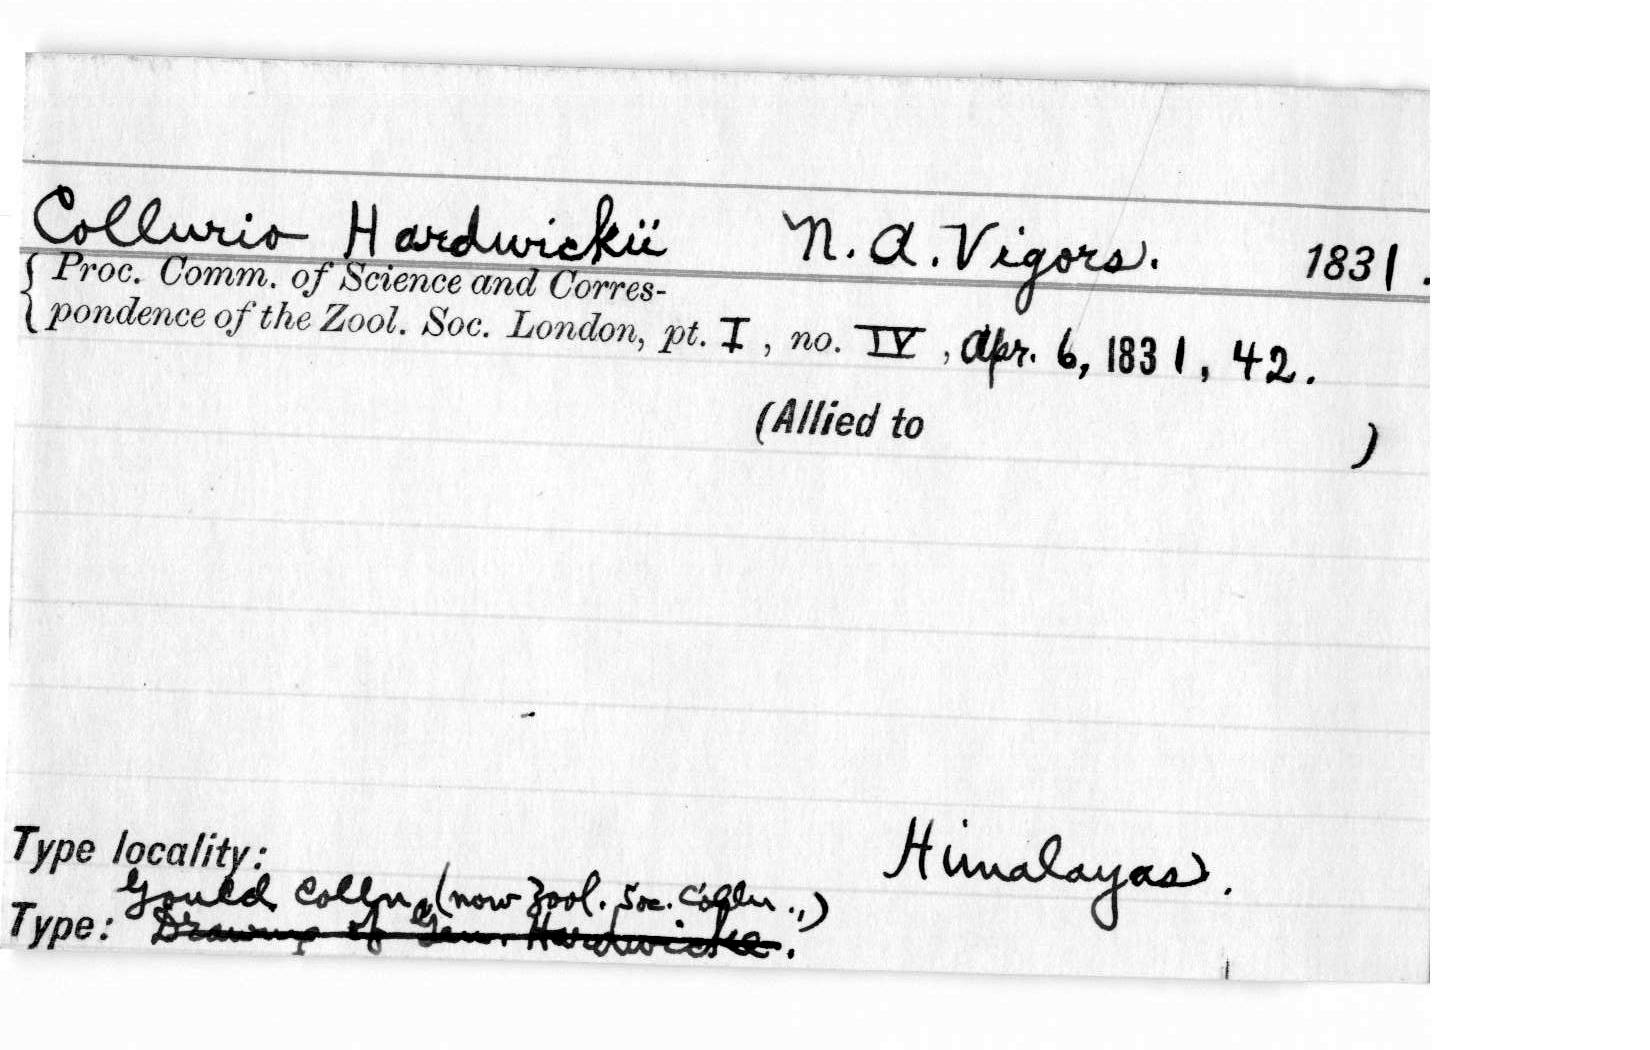 Collurio Hardwickii N. A. Vigors. 1831.
Proc. Comm. of Science and Corres-
pondence of the Zool. Soc. London, pt. I, no. IV, Apr. 6, 1831, 42.
(Allied to )
Type locality: Himalayas.
Gould Colln. (now Zool. Soc. Colln.,)
Type: Drawing of Gen. Hardwicke.